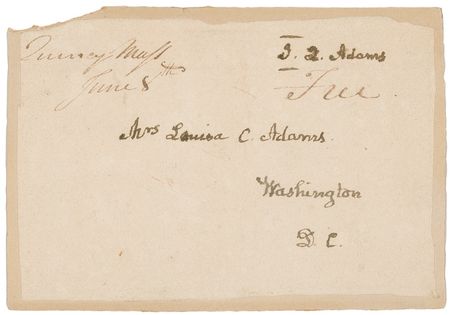 Quincy Mass
June 8th
J. Q. Adams
Free.
Mrs Louisa C. Adams.
Washington
D. C.